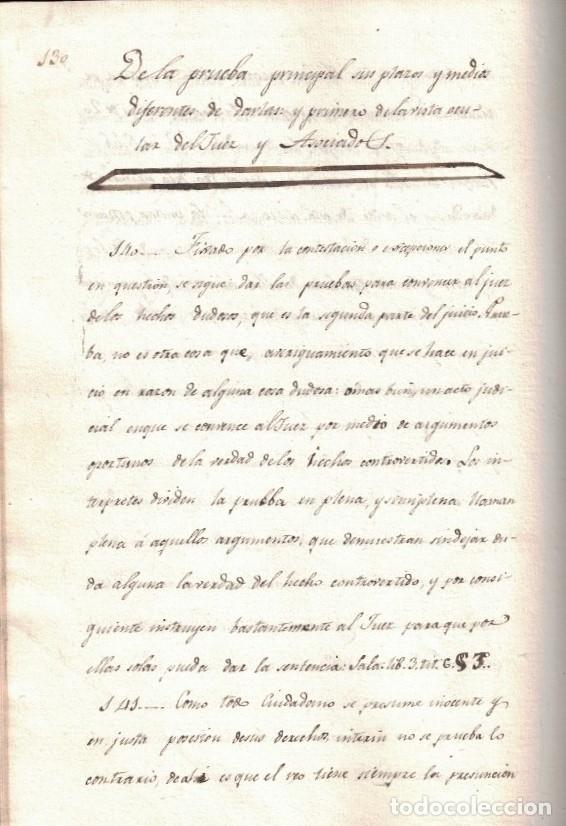 130
De la prueba principal sus plazos y medios
diferentes de darlas y primero de la vista ocu-
lar del Juez y Asociados.
140.... Fixado por la contestacion o excepciones el punto
en question se sigue dar las pruebas para convencer al juez
de los hechos dudosos, que es la segunda parte del juicio. Prue-
ba, no es otra cosa que, averiguamiento que se hace en jui-
cio en razon de alguna cosa dudosa: o mas bien, un acto judi-
cial en que se convence al Juez por medio de argumentos
oportunos de la verdad de los hechos controvertidos. Los in-
terpretes dividen la prueba en plena, y semiplena. Llaman
plena á aquellos argumentos, que demuestran sin dejar du-
da alguna la verdad del hecho controvertido, y por consi-
guiente instruyen bastantemente al Juez para que por
ellas solas pueda dar la sentencia: Sala: lib. 3. tit. 6.
141.... Como todo Ciudadano se presume inocente y
en justa posesion de sus derechos, interin no se prueba lo
contrario, de ahi es que el reo tiene siempre la presuncion
todocoleccion.net